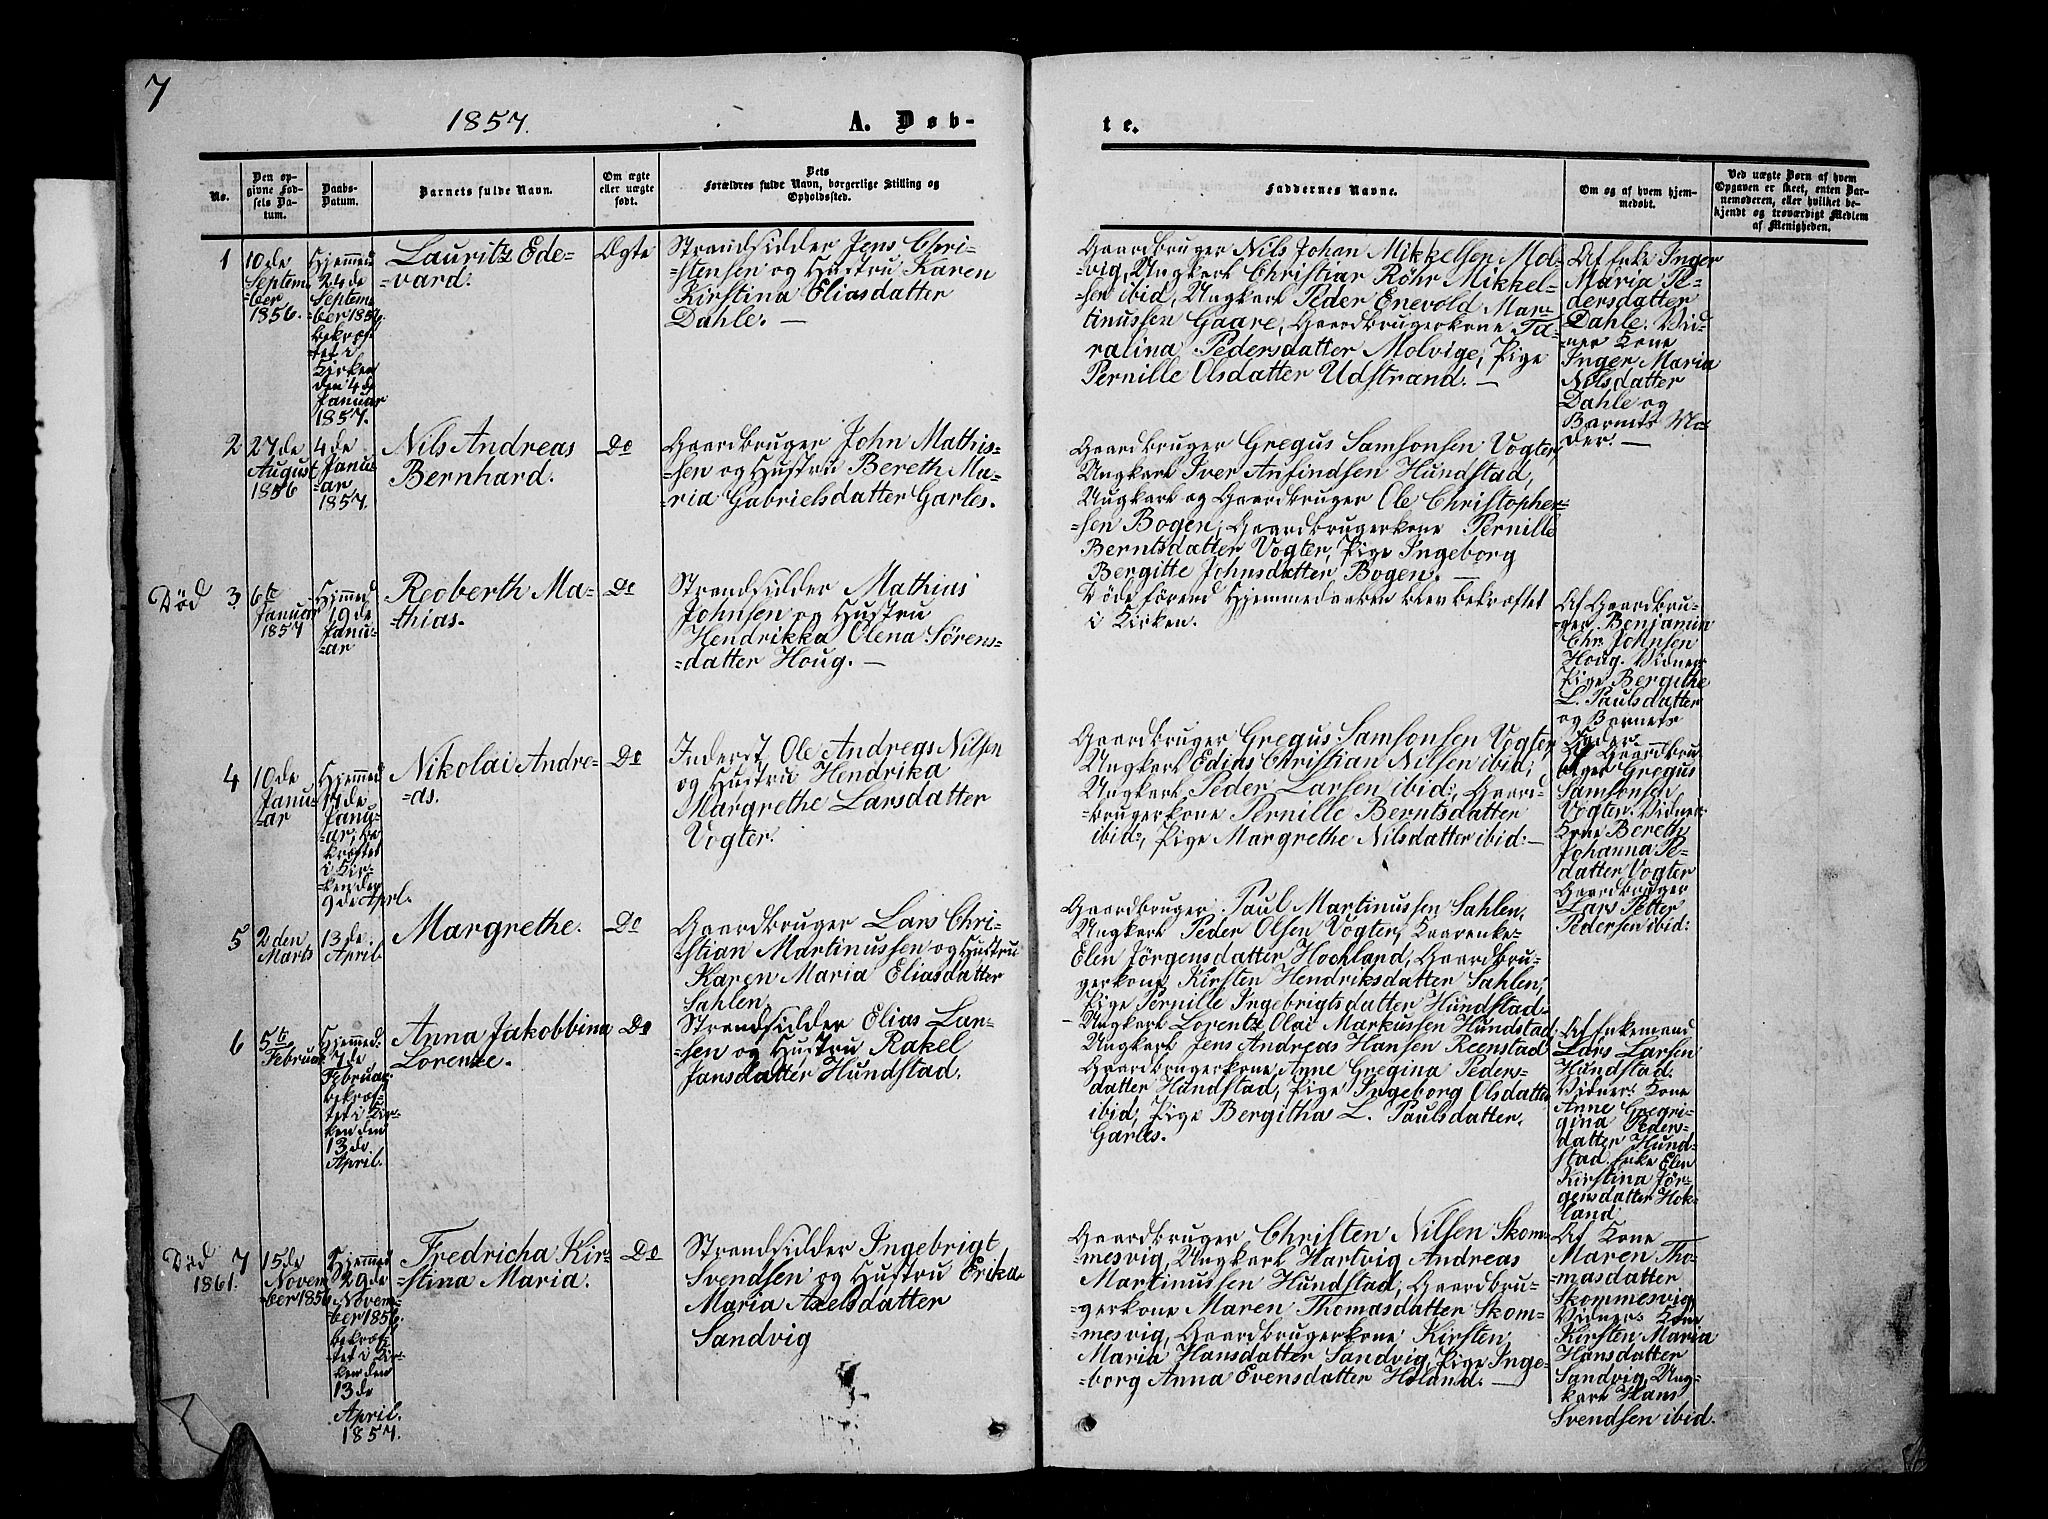 7
1857.
A. Døb-
te.
No.
Den op-
givne Fød-
sels Da-
tum.
Daabs-
Datum.
Barnets fulde Navn.
Om ægte
eller uægte
født.
Dets
Forældres fulde Navn, borgerlige Stilling og
Opholdssted.
Faddernes Navne.
Om og af hvem hjem-
medøbt.
Ved uægte Børn af hvem
Opgaven er skeet, enten Bar-
nemoderen, eller hvilket be-
kjendt og troværdigt Medlem
af Menigheden.
1
10de
Septem-
=ber
1856.
Hjemmed
24de
Septem-
=ber 1856
bekræf-
=tet i
Kirken
den 4de
Januar
1857.
Lauritz Ede-
=vard.
Ægte
Strandsidder Jens Chri-
=stensen og Hustru Karen
Kirstina Eliasdatter
Dahle. —
Gaardbruger Nils Johan Mikkelsen Mol-
=vig, Ungkarl Christiar Röhr Mikkel-
=sen ibid, Ungkarl Peder Enevold Mar-
tinussen Gaare, Gaardbrugerkone Ta-
ralina Pedersdatter Molvige, Pige
Pernille Olsdatter Udstrand. —
Af Enke Inger
Maria Pe-
dersdatter
Dahle. Vid-
ner Kone
Inger Maria
Nilsdatter
Dahle og
Barnets Mo-
der. —
2
27de
August
1856
4de
Janu-
=ar
1857.
Nils Andreas
Bernhard.
Do
Gaardbruger John Mathis-
=sen og Hustru Bereth Ma-
=ria Gabrielsdatter Garles.
Gaardbruger Gregus Samsonsen Vogter,
Ungkarl Iver Anfindsen Hundstad,
Ungkarl og Gaardbruger Ole Christopher-
=sen Bogen, Gaardbrugerkone Pernille
Berntsdatter Vogter, Pige Ingeborg
Bergitte Johnsdatter Bogen. —
Død
3
6te
Januar
1857
Hjemmed
19de
Janu-
=ar
Reoberth Ma-
=thias.
Do
Strandsidder Mathias
Johnsen og Hustru
Hendrikka Olena Sørens-
=datter Houg. —
Døde förend Hjemmedaaben blev bekræftet
i Kirken.
Af Gaardbru-
=ger Benjamin
Chr. Johnsen
Houg. Vidner
Pige Bergithe
L. Paulsdatter
og Barnets
Fader.
4
10de
Janu-
=ar
Hjemmed
17de
Janu-
=ar, be
kræftet
i Kir-
=ken den
9de April.
Nikolai Andre-
=as.
Do
Inderst Ole Andreas Nilsen
og Hustru Hendrika
Margrethe Larsdatter
Vogter.
Gaardbruger Gregus Samsonsen Vogter,
Ungkarl Edias Christian Nilsen ibid;
Ungkarl Peder Larsen ibid:, Gaard-
=brugerkone Pernille Berntsdatter
ibid:, Pige Margrethe Nilsdatter ibid: —
Af Gaardbru
=ger Gregus
Samsonsen
Vogter. Vidner
Kone Bereth
Johanna Pe-
datter Vogter
Gaardbruger
Lars Petter
Pedersen ibid:
5
2den
Marts
13de
April
Margrethe.
Do
Gaardbruger Lars Chri-
=stian Martinussen og Hustru
Karen Maria Eliasdatter
Sahlen.
Gaardbruger Paul Martinussen Sahlen,
Ungkarl Peder Olsen Vogter,
Elen Jörgensdatter Hochland, Gaardbru-
gerkone Kirsten Hendriksdatter Sahlen,
Pige Pernille Ingebrigtsdatter Hundstad-
6
5te
Februar
Hjemmed:
7de
Februar
bekræf-
=tet i Kir-
ken den
13de
April.
Anna Jakobbina
Lorenze.
Do
Strandsidder Elias Lan-
=sen og Hustru Rakel
Jansdatter Hundstad.
Ungkarl Lorentz Olai Markussen Hundstad,
Ungkarl Jens Andreas Hansen Reenstad
Gaardbrugerkone Anne Gregina Peders-
datter Hundstad, Pige Ingeborg Olsdatter
ibid; Pige Bergitha L. Paulsdatter,
Garles.
Af Enkemand
Lars Larsen
Hundstad.
Vidner: Kone
Anne Gregri-
gina Peders-
datter Hund-
stad. Enke Elen
Kirstina Jör-
gensdatter Hok-
land
Død
1861.
7
15de
Novem
=ber 1856
Hjemmed
29de
Novem-
=ber 1856.
bekræf-
=tet i Kir-
ken den
13de
April.
1857.
Fredricha Kir-
=stina Maria.
Do
Strandsidder Ingebrigt
Svendsen og Hustru Erika
Maria Axelsdatter
Sandvig
Gaardbruger Christen Nilsen Skom-
mesvig, Ungkarl Hartvig Andreas
Martinussen Hundstad, Gaardbru-
=gerkone Maren Thomasdatter Skom-
=mesvig, Gaardbrugerkone Kirsten
Maria Hansdatter Sandvig, Pige Inge-
=borg Anna Evensdatter Holand. —
Af Kone
Maren Tho-
=masdatter
Skommesvig,
Vidner: Kone
Kirsten Maria
Hansdatter
Sandvig, Ung-
karl Hans
Svendsen ibid.